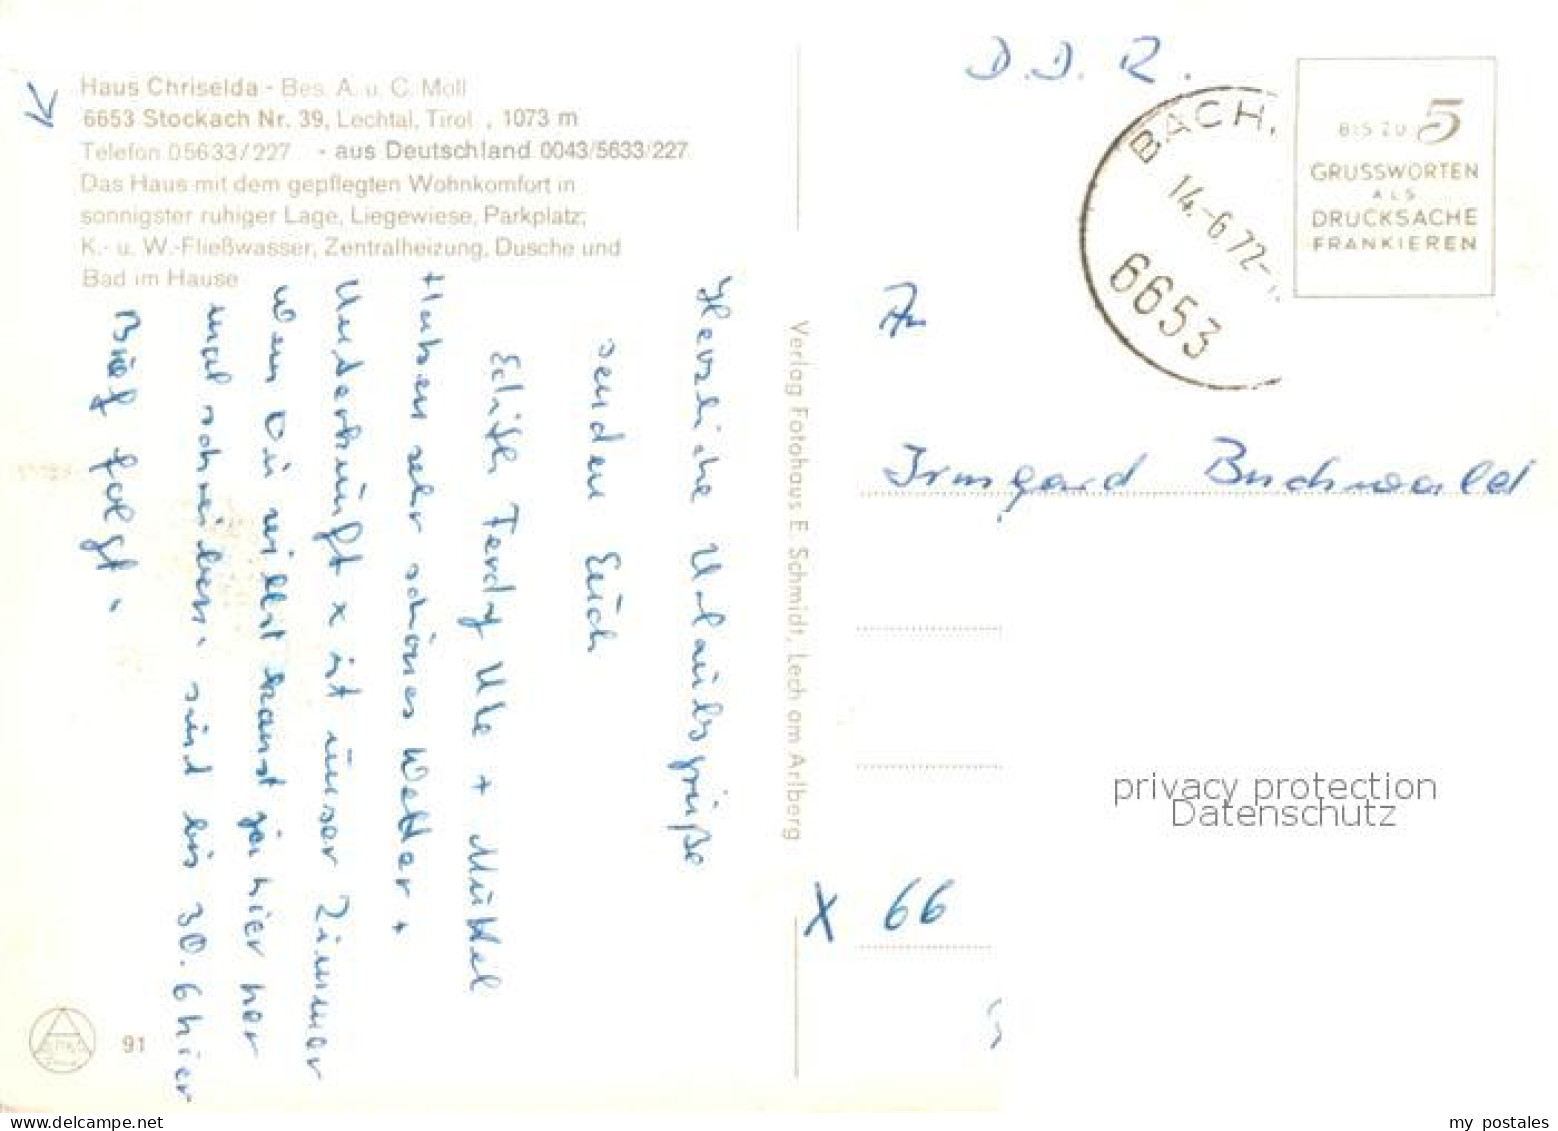 Haus Chriselda - Bes. A. u. C. Moll
6653 Stockach Nr. 39, Lechtal, Tirol , 1073 m
Telefon 05633/227 - aus Deutschland 0043/5633/227
Das Haus mit dem gepflegten Wohnkomfort in
sonnigster ruhiger Lage, Liegewiese, Parkplatz,
K.- u. W.-Fließwasser, Zentralheizung, Dusche und
Bad im Hause
Herzliche Urlaubsgrüße
senden Euch
Edith Ferdy Ulle + Muttel
Haben sehr schönes Wetter.
Unterkunft x ist unser Zimmer
wenn Du willst kannst ja hier her
mal schreiben. sind bis 30.6 hier
Brief folgt.
91
Verlag Fotohaus E. Schmidt, Lech am Arlberg
D.D.R.
BACH,
14.-6.72-
6653
BIS ZU 5
GRUSSWORTEN
ALS
DRUCKSACHE
FRANKIEREN
An
Irmgard Buchwald
X 66
privacy protection
Datenschutz
my postales